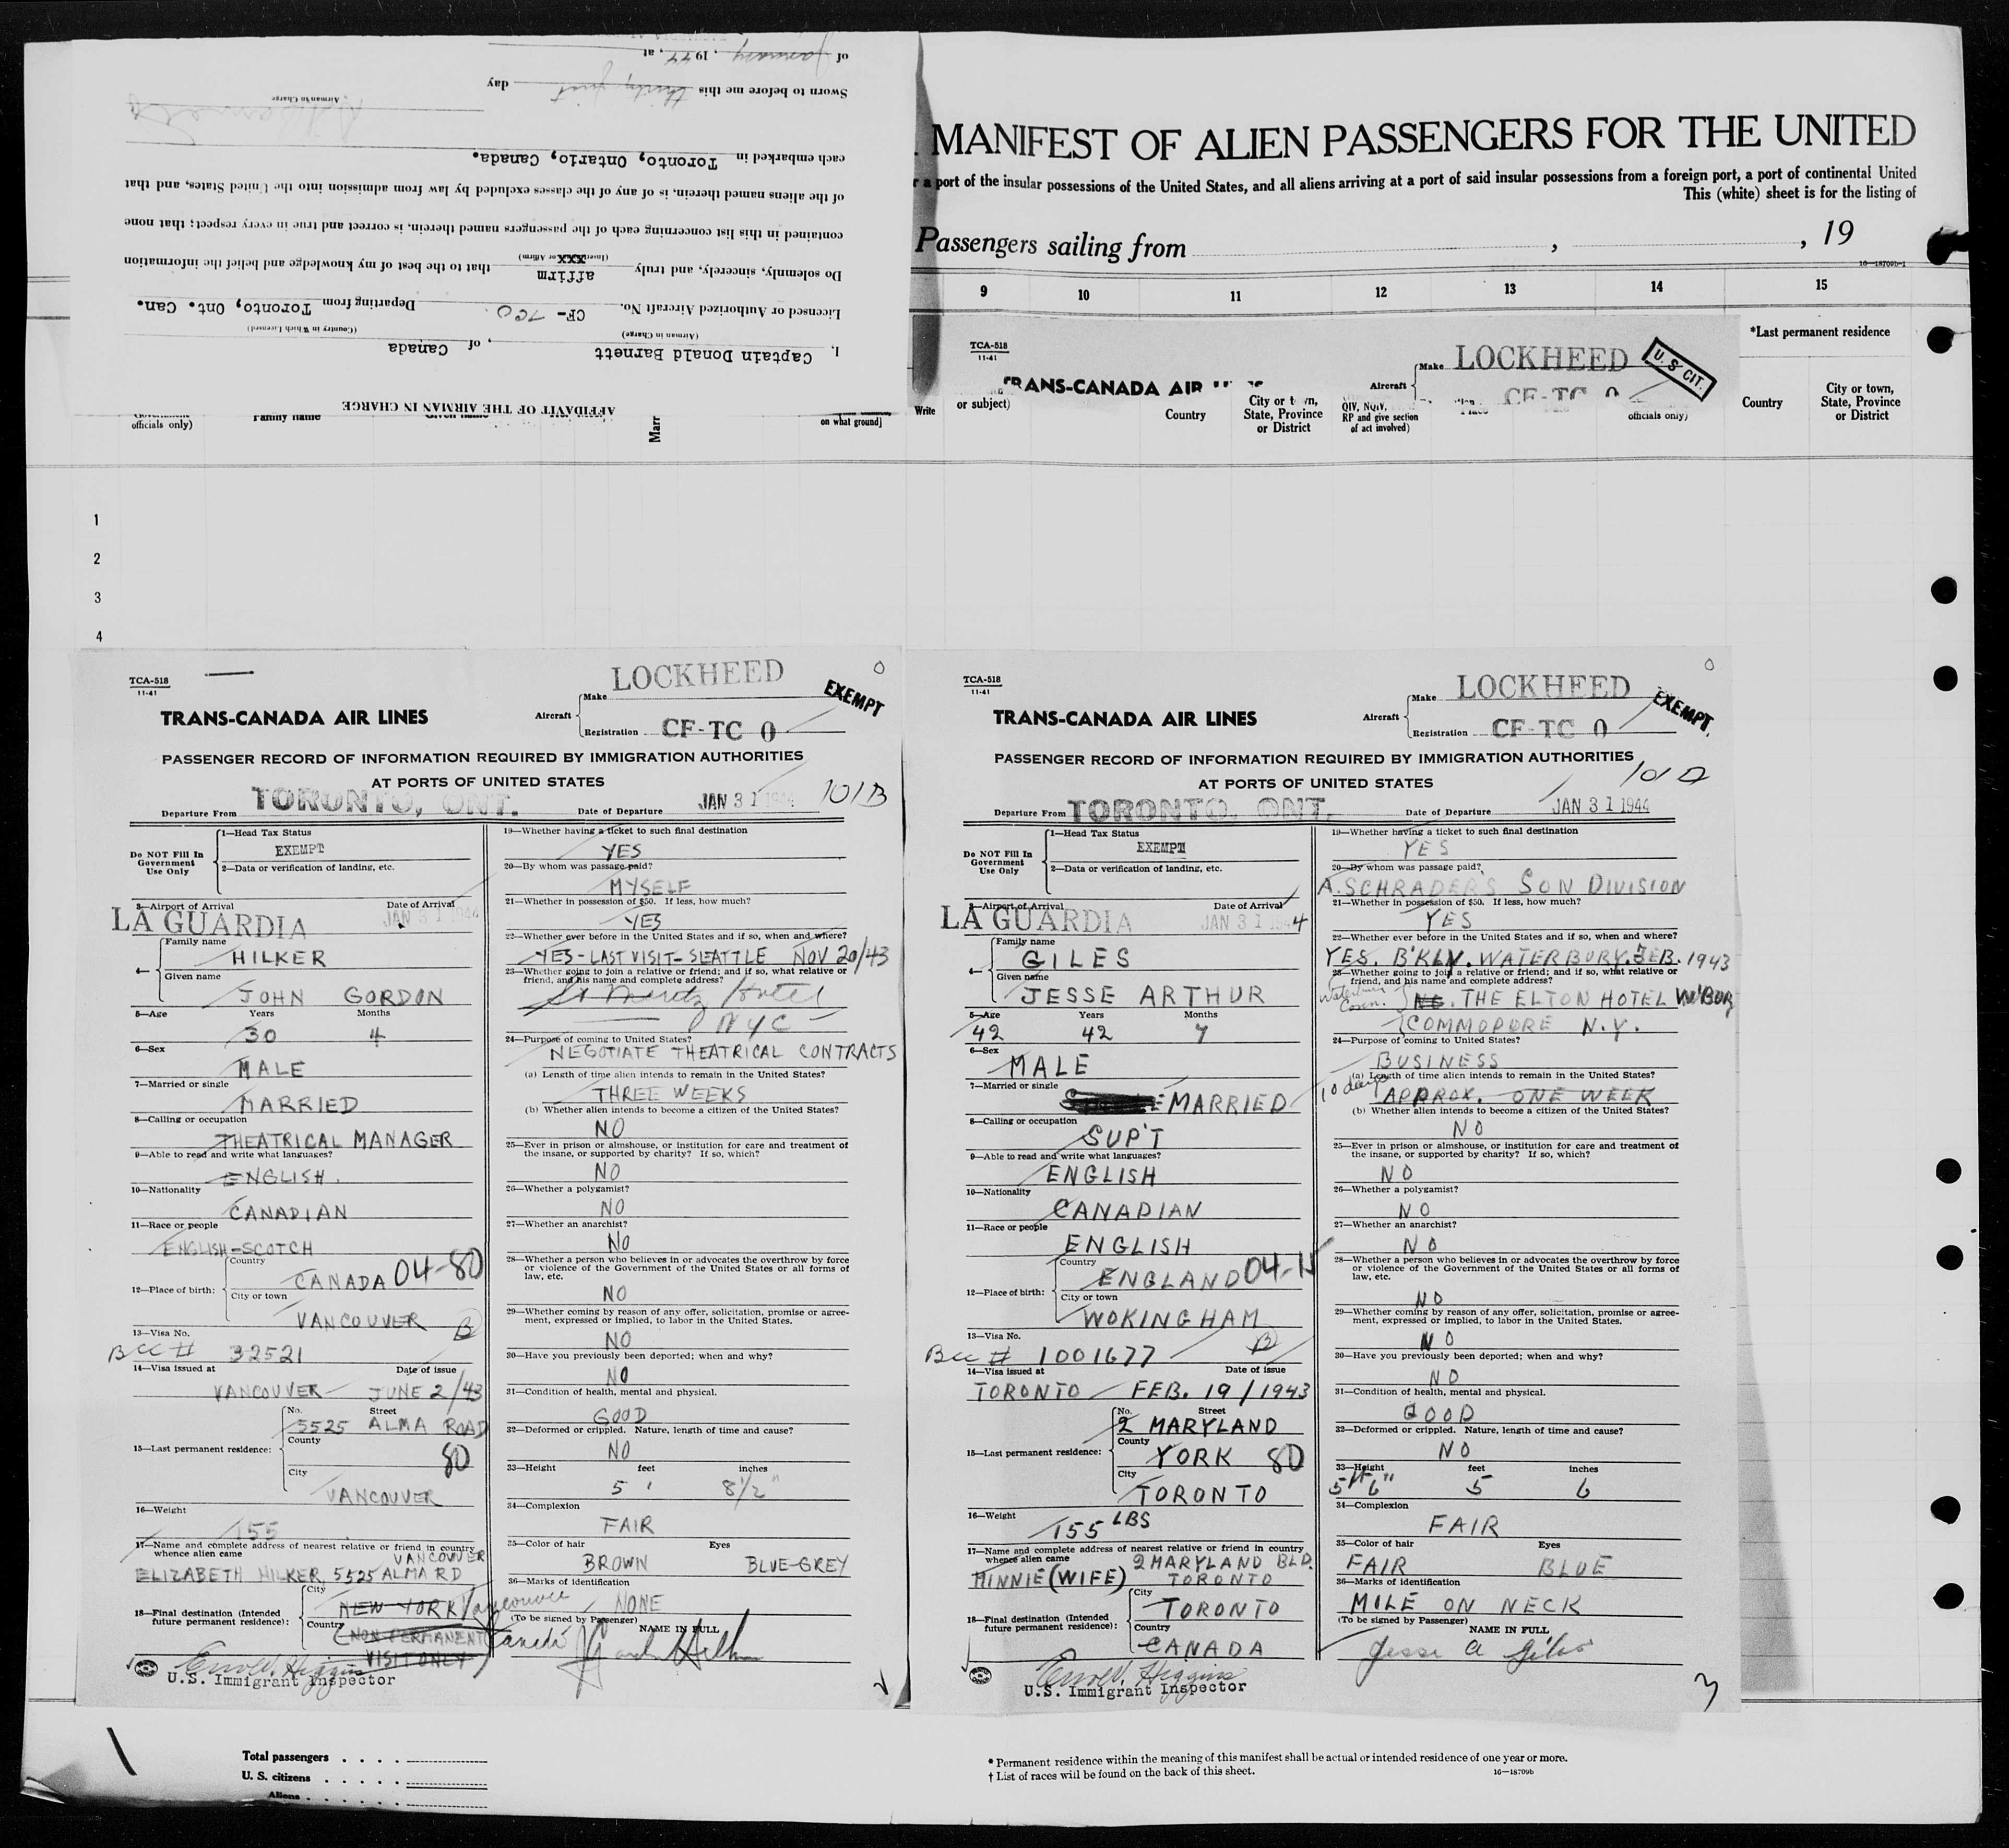 of January, 1944, at
Sworn to before me this thirty first day
Airman in Charge
each embarked in Toronto, Ontario, Canada.
of the aliens named therein, is of any of the classes excluded by law from admission into the United States, and that
contained in this list concerning each of the passengers named therein, is correct and true in every respect; that none
(Insert XXX or Affirm)
Do solemnly, sincerely, and truly affirm that to the best of my knowledge and belief the information
Licensed or Authorized Aircraft No. CF- TCO. Departing from Toronto, Ont. Can.
(Airman in Charge) (Country in Which Licensed)
I, Captain Donald Barnett, of Canada
AFFIDAVIT OF THE AIRMAN IN CHARGE
officials only)
Family name
Marr
on what ground]
MANIFEST OF ALIEN PASSENGERS FOR THE UNITED
r a port of the insular possessions of the United States, and all aliens arriving at a port of said insular possessions from a foreign port, a port of continental United
This (white) sheet is for the listing of
Passengers sailing from , , 19
16—18709b-1
9 10 11 12 13 14 15
*Last permanent residence
TCA-518
11-41
TRANS-CANADA AIR
Aircraft
Make LOCKHEED
U. S CIT.
CF-TC 0
Write
or subject)
Country
City or town, State, Province or District
QIV, NQIV, RP and give section of act involved)
Place
officials only)
Country
City or town, State, Province or District
1
2
3
4
TCA-518
11-41
LOCKHEED
EXEMPT
0
TRANS-CANADA AIR LINES
Aircraft
Make
Registration CF-TC 0
PASSENGER RECORD OF INFORMATION REQUIRED BY IMMIGRATION AUTHORITIES
AT PORTS OF UNITED STATES
101B
Departure From TORONTO, ONT. Date of Departure JAN 31 1944
Do NOT Fill In Government Use Only
1—Head Tax Status
EXEMPT
2—Data or verification of landing, etc.
3—Airport of Arrival Date of Arrival
LA GUARDIA JAN 31 1944
4—
Family name
HILKER
Given name
JOHN GORDON
5—Age Years Months
30 4
6—Sex
MALE
7—Married or single
MARRIED
8—Calling or occupation
THEATRICAL MANAGER
9—Able to read and write what languages?
ENGLISH.
10—Nationality
CANADIAN
11—Race or people
ENGLISH-SCOTCH
12—Place of birth:
Country
CANADA 04-80
City or town
VANCOUVER B
13—Visa No.
Bcc # 32521
14—Visa issued at Date of issue
VANCOUVER JUNE 2/43
15—Last permanent residence:
No. Street
5525 ALMA ROAD
County
80
City
VANCOUVER
16—Weight
155
17—Name and complete address of nearest relative or friend in country whence alien came
VANCOUVER
ELIZABETH HILKER, 5525 ALMA RD
18—Final destination (Intended future permanent residence):
City
NEW YORK Vancouver
Country
(NON PERMANENT Canada
VISIT ONLY)
U.S. Immigrant Inspector
19—Whether having a ticket to such final destination
YES
20—By whom was passage paid?
MYSELF
21—Whether in possession of $50. If less, how much?
YES
22—Whether ever before in the United States and if so, when and where?
YES - LAST VISIT - SEATTLE NOV 20/43
23—Whether going to join a relative or friend; and if so, what relative or friend, and his name and complete address?
St Moritz Hotel
NYC
24—Purpose of coming to United States?
NEGOTIATE THEATRICAL CONTRACTS
(a) Length of time alien intends to remain in the United States?
THREE WEEKS
(b) Whether alien intends to become a citizen of the United States?
NO
25—Ever in prison or almshouse, or institution for care and treatment of the insane, or supported by charity? If so, which?
NO
26—Whether a polygamist?
NO
27—Whether an anarchist?
NO
28—Whether a person who believes in or advocates the overthrow by force or violence of the Government of the United States or all forms of law, etc.
NO
29—Whether coming by reason of any offer, solicitation, promise or agreement, expressed or implied, to labor in the United States.
NO
30—Have you previously been deported; when and why?
NO
31—Condition of health, mental and physical.
GOOD
32—Deformed or crippled. Nature, length of time and cause?
NO
33—Height feet inches
5 ' 8 1/2 "
34—Complexion
FAIR
35—Color of hair Eyes
BROWN BLUE-GREY
36—Marks of identification
NONE
(To be signed by Passenger)
NAME IN FULL
2
TCA-518
11-41
LOCKHEED
EXEMPT
0
TRANS-CANADA AIR LINES
Aircraft
Make
Registration CF-TC 0
PASSENGER RECORD OF INFORMATION REQUIRED BY IMMIGRATION AUTHORITIES
AT PORTS OF UNITED STATES
101 D
Departure From TORONTO, ONT. Date of Departure JAN 31 1944
Do NOT Fill In Government Use Only
1—Head Tax Status
EXEMPT
2—Data or verification of landing, etc.
3—Airport of Arrival Date of Arrival
LA GUARDIA JAN 31 1944
4—
Family name
GILES
Given name
JESSE ARTHUR
5—Age Years Months
42 42 7
6—Sex
MALE
7—Married or single
MARRIED
8—Calling or occupation
SUP'T
9—Able to read and write what languages?
ENGLISH
10—Nationality
CANADIAN
11—Race or people
ENGLISH
12—Place of birth:
Country
ENGLAND 04-15
City or town
WOKINGHAM
13—Visa No. B
Bcc # 1001677
14—Visa issued at Date of issue
TORONTO FEB. 19/1943
15—Last permanent residence:
No. Street
2 MARYLAND
County
YORK 80
City
TORONTO
16—Weight
155 LBS
17—Name and complete address of nearest relative or friend in country whence alien came
2 MARYLAND BLD.
MINNIE (WIFE) TORONTO
18—Final destination (Intended future permanent residence):
City
TORONTO
Country
CANADA
U.S. Immigrant Inspector
19—Whether having a ticket to such final destination
YES
20—By whom was passage paid?
A. SCHRADER'S SON DIVISION
21—Whether in possession of $50. If less, how much?
YES
22—Whether ever before in the United States and if so, when and where?
YES. B'KLY. WATERBURY. FEB. 1943
23—Whether going to join a relative or friend; and if so, what relative or friend, and his name and complete address?
Waterbury Conn. THE ELTON HOTEL W'BURY
COMMODORE N.Y.
24—Purpose of coming to United States?
BUSINESS
(a) Length of time alien intends to remain in the United States?
10 days APPROX. ONE WEEK
(b) Whether alien intends to become a citizen of the United States?
NO
25—Ever in prison or almshouse, or institution for care and treatment of the insane, or supported by charity? If so, which?
NO
26—Whether a polygamist?
NO
27—Whether an anarchist?
NO
28—Whether a person who believes in or advocates the overthrow by force or violence of the Government of the United States or all forms of law, etc.
NO
29—Whether coming by reason of any offer, solicitation, promise or agreement, expressed or implied, to labor in the United States.
NO
30—Have you previously been deported; when and why?
NO
31—Condition of health, mental and physical.
GOOD
32—Deformed or crippled. Nature, length of time and cause?
NO
33—Height feet inches
5 ft 6" 5 6
34—Complexion
FAIR
35—Color of hair Eyes
FAIR BLUE
36—Marks of identification
MOLE ON NECK
(To be signed by Passenger)
NAME IN FULL
Jesse A Giles
3
Total passengers
U. S. citizens
Aliens
* Permanent residence within the meaning of this manifest shall be actual or intended residence of one year or more.
† List of races will be found on the back of this sheet.
16—18709b